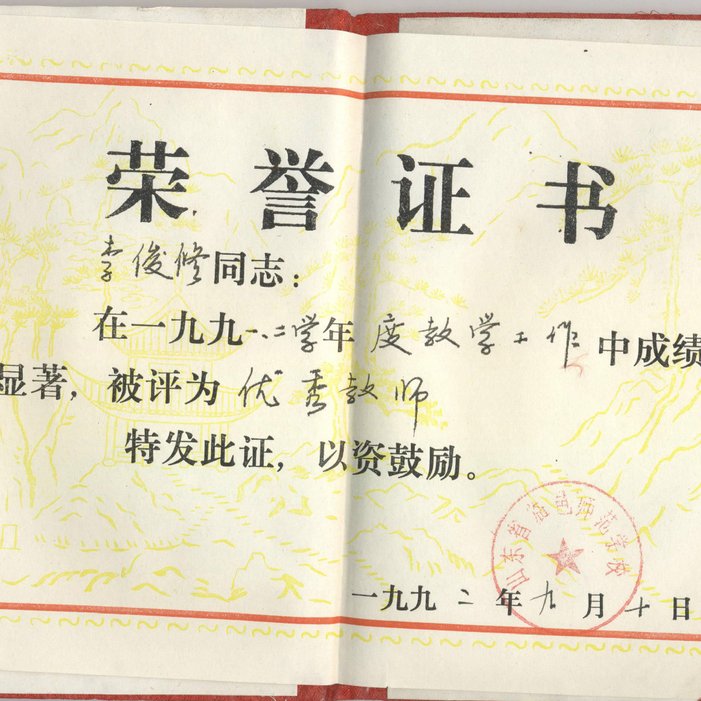 荣誉证书
李俊修同志：
在一九九一.二学年度教学工作中成绩
显著，被评为优秀教师
特发此证，以资鼓励。
山东省洛邑师范学校
一九九二年九月十日